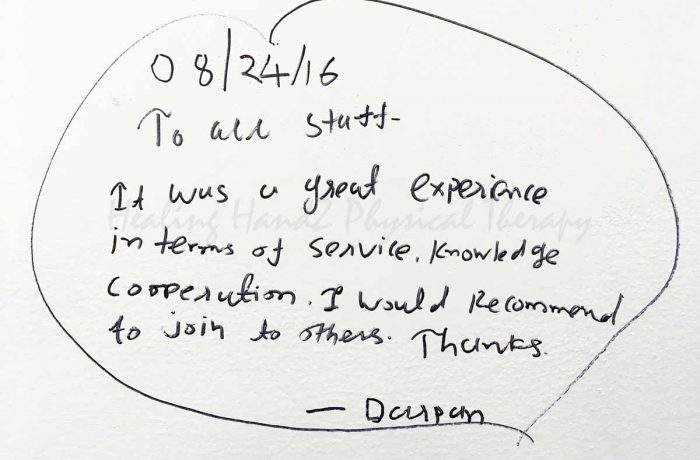 08/24/16
To all staff-
It was a great experience
Healing Handz Physical Therapy
in terms of service, knowledge
cooperation. I would Recommend
to join to others. Thanks.
— Darpan